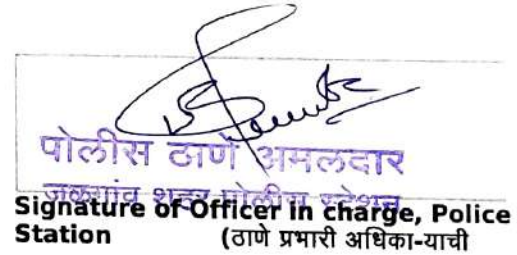 पोलीस ठाणे अमलदार
जळगांव शहर पोलीस स्टेशन
Signature of Officer in charge, Police
Station (ठाणे प्रभारी अधिका-याची